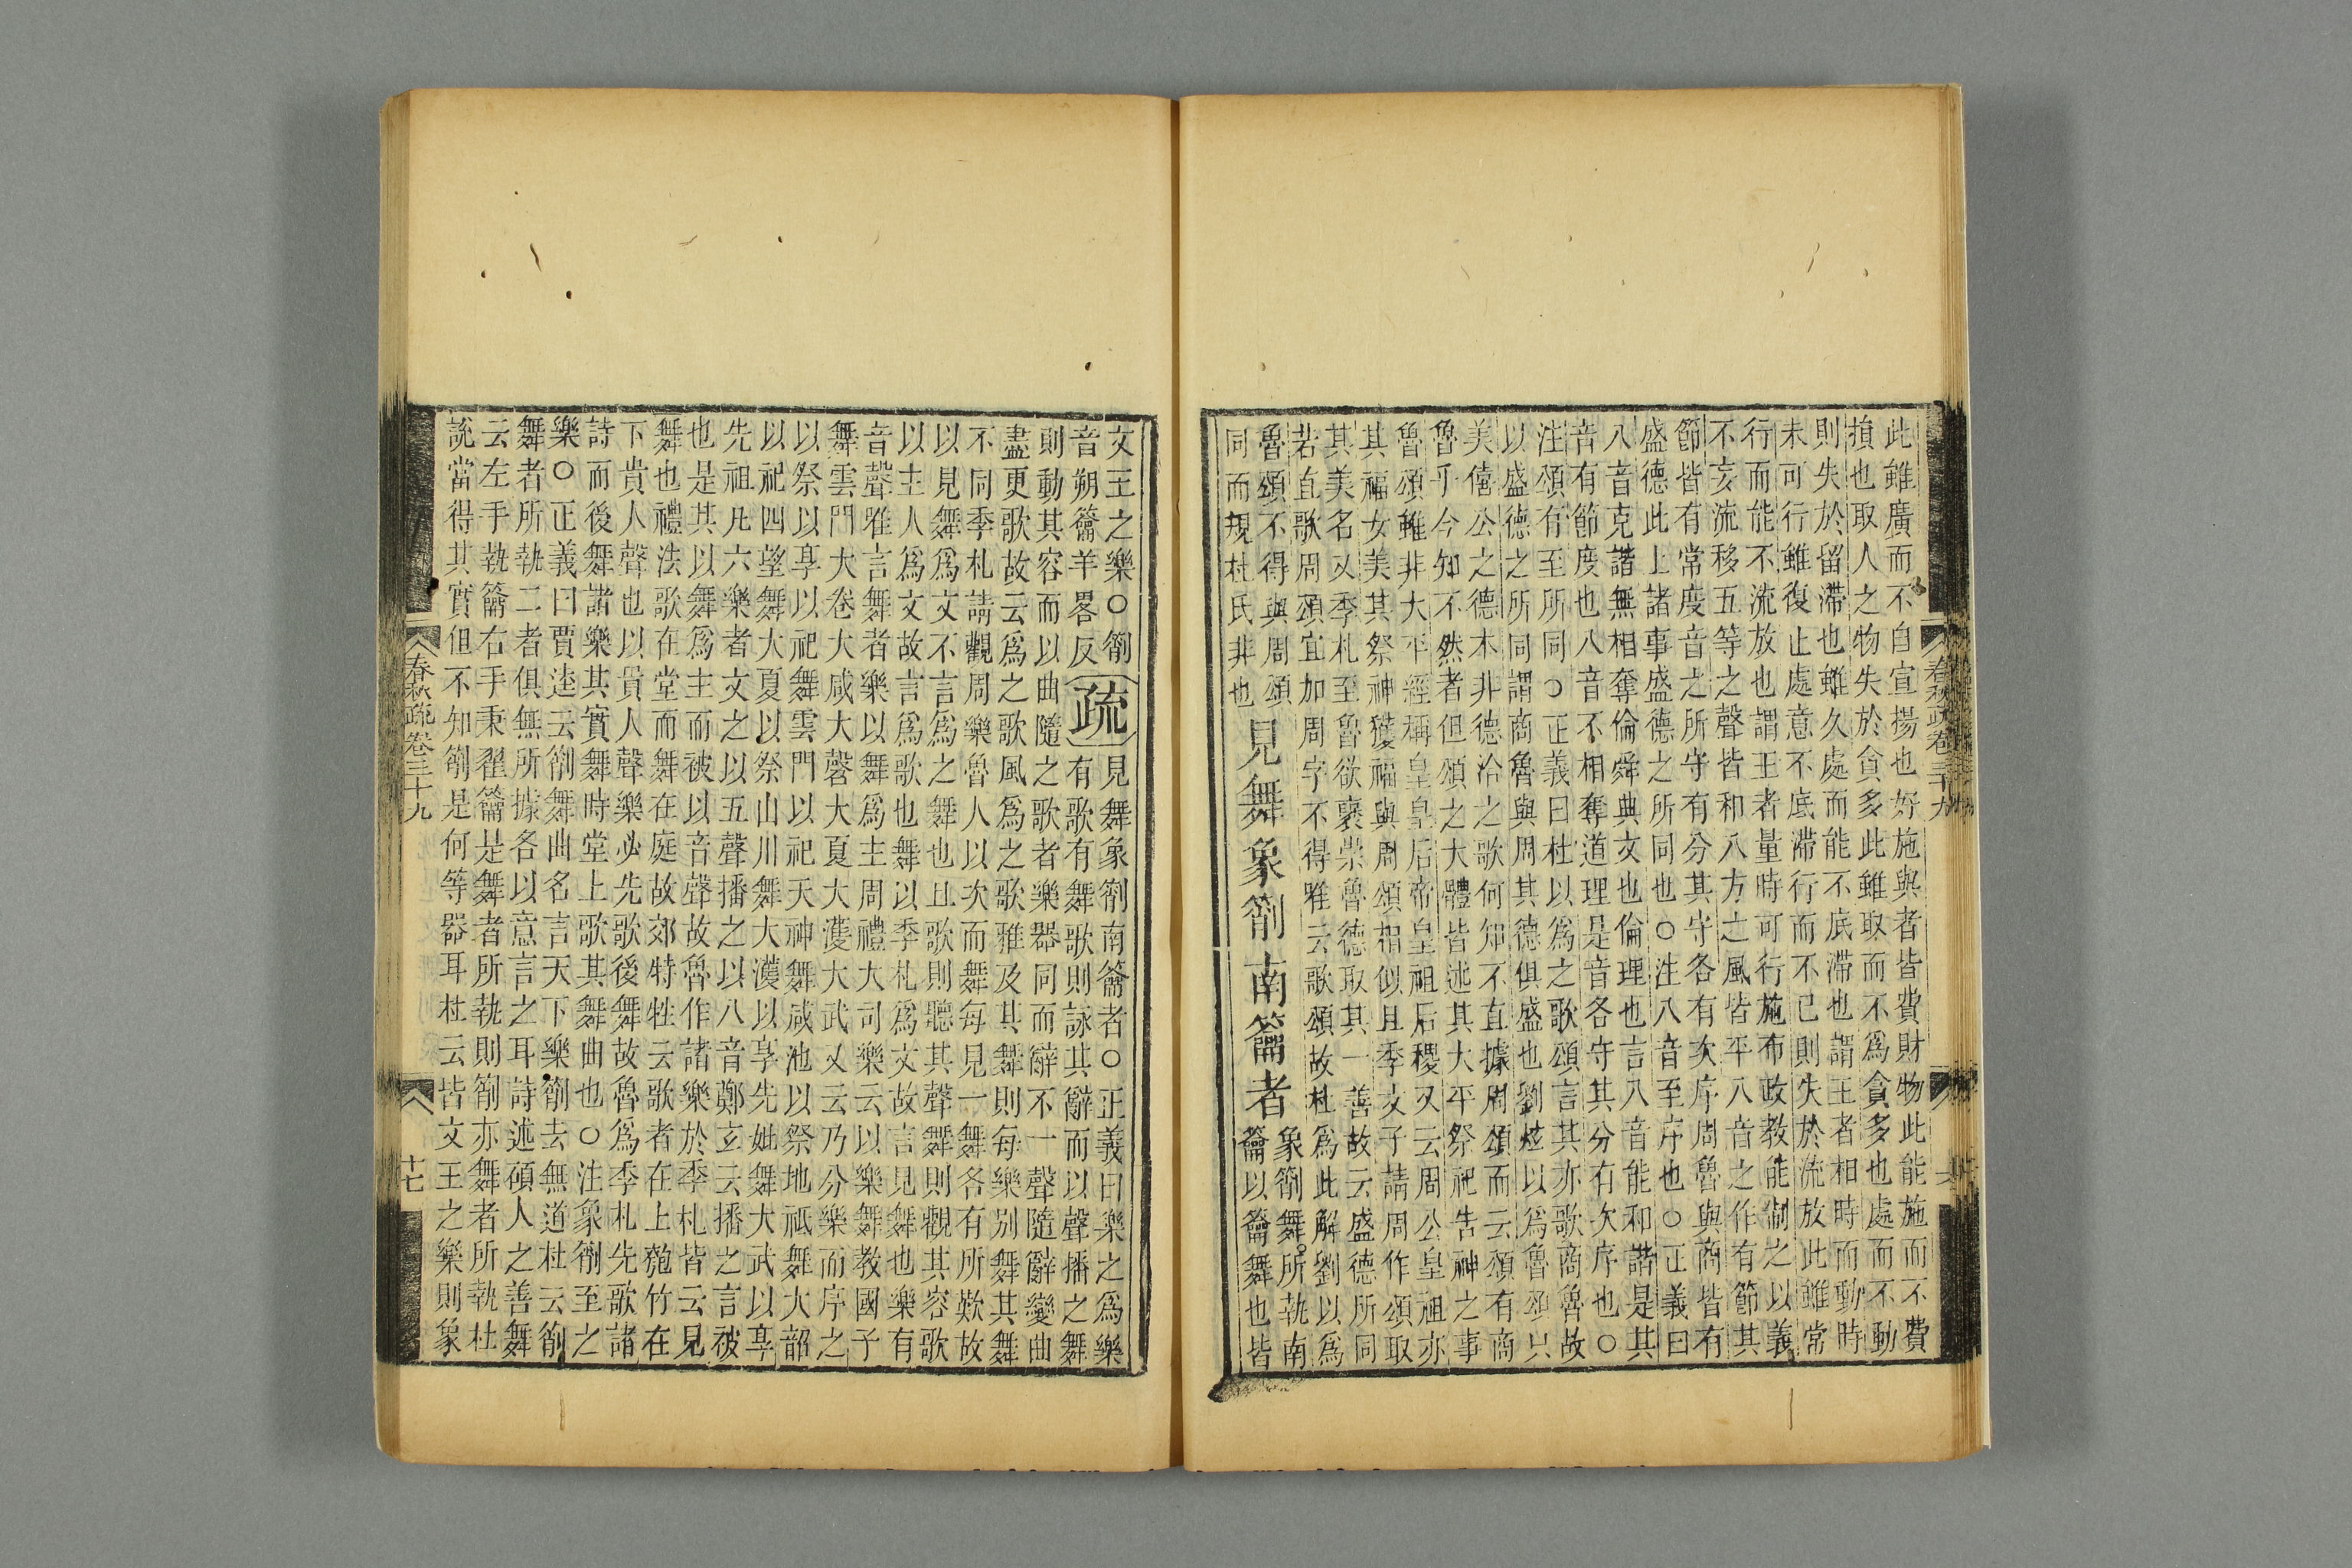 春秋疏卷三十九
此雖廣而不自宣揚也好施與者皆費財物此能施而不費
損也取人之物失於貪多此雖取而不爲貪多也處而不動
則失於留滯也雖久處而能不底滯也謂王者相時而動時
未可行雖復止處意不底滯行而不已則失於流放此雖常
行而能不流放也謂王者量時可行施布政教能制之以義
不妄流移五等之聲皆和八方之風皆平八音之作有節其
節皆有常度音之所守有分其守各有次序周魯與商皆有
盛德此上諸事盛德之所同也○注八音至序也○正義曰
八音克諧無相奪倫舜典文也倫理也言八音能和諧是其
音有節度也八音不相奪道理是音各守其分有次序也○
注頌有至所同○正義曰杜以爲之歌頌言其亦歌商魯故
以盛德之所同謂商魯與周其德俱盛也劉炫以爲魯頌只
美僖公之德本非德洽之歌何知不直據周頌而云頌有商
魯乎今知不然者但頌之大體皆述其大平祭祀告神之事
魯頌雖非大平經稱皇皇后帝皇祖后稷又云周公皇祖亦
其福女美其祭神獲福與周頌相似且季文子請周作頌取
其美名又季札至魯欲褒崇魯德取其一善故云盛德所同
若直歌周頌宜加周字不得雅云歌頌故杜爲此解劉以爲
魯頌不得與周頌
同而規杜氏非也
見舞象箾南籥者
象箾舞所執南
籥以籥舞也皆
文王之樂○箾
音朔籥羊畧反
疏
見舞象箾南籥者○正義曰樂之爲樂
有歌有舞歌則詠其辭而以聲播之舞
則動其容而以曲隨之歌者樂器同而辭不一聲隨辭變曲
盡更歌故云爲之歌風爲之歌雅及其舞則每樂别舞其舞
不同季札請觀周樂魯人以次而舞每見一舞各有所歎故
以見舞爲文不言爲之舞也且歌則聽其聲舞則觀其容歌
以主人爲文故言爲歌也舞以季札爲文故言見舞也樂有
音聲雅言舞者樂以舞爲主周禮大司樂云以樂舞教國子
舞雲門大卷大咸大磬大夏大濩大武又云乃分樂而序之
以祭以享以祀舞雲門以祀天神舞咸池以祭地祇舞大韶
以祀四望舞大夏以祭山川舞大濩以享先妣舞大武以享
先祖凡六樂者文之以五聲播之以八音鄭玄云播之言被
也是其以舞爲主而被以音聲故魯作諸樂於季札皆云見
舞也禮法歌在堂而舞在庭故郊特牲云歌者在上匏竹在
下貴人聲也以貴人聲樂必先歌後舞故魯爲季札先歌諸
詩而後舞諸樂其實舞時堂上歌其舞曲也○注象箾至之
樂○正義曰賈逵云箾舞曲名言天下樂箾去無道杜云箾
舞者所執二者俱無所據各以意言之耳詩述碩人之善舞
云左手執籥右手秉翟籥是舞者所執則箾亦舞者所執杜
説當得其實但不知箾是何等器耳杜云皆文王之樂則象
春秋疏卷三十九
十七